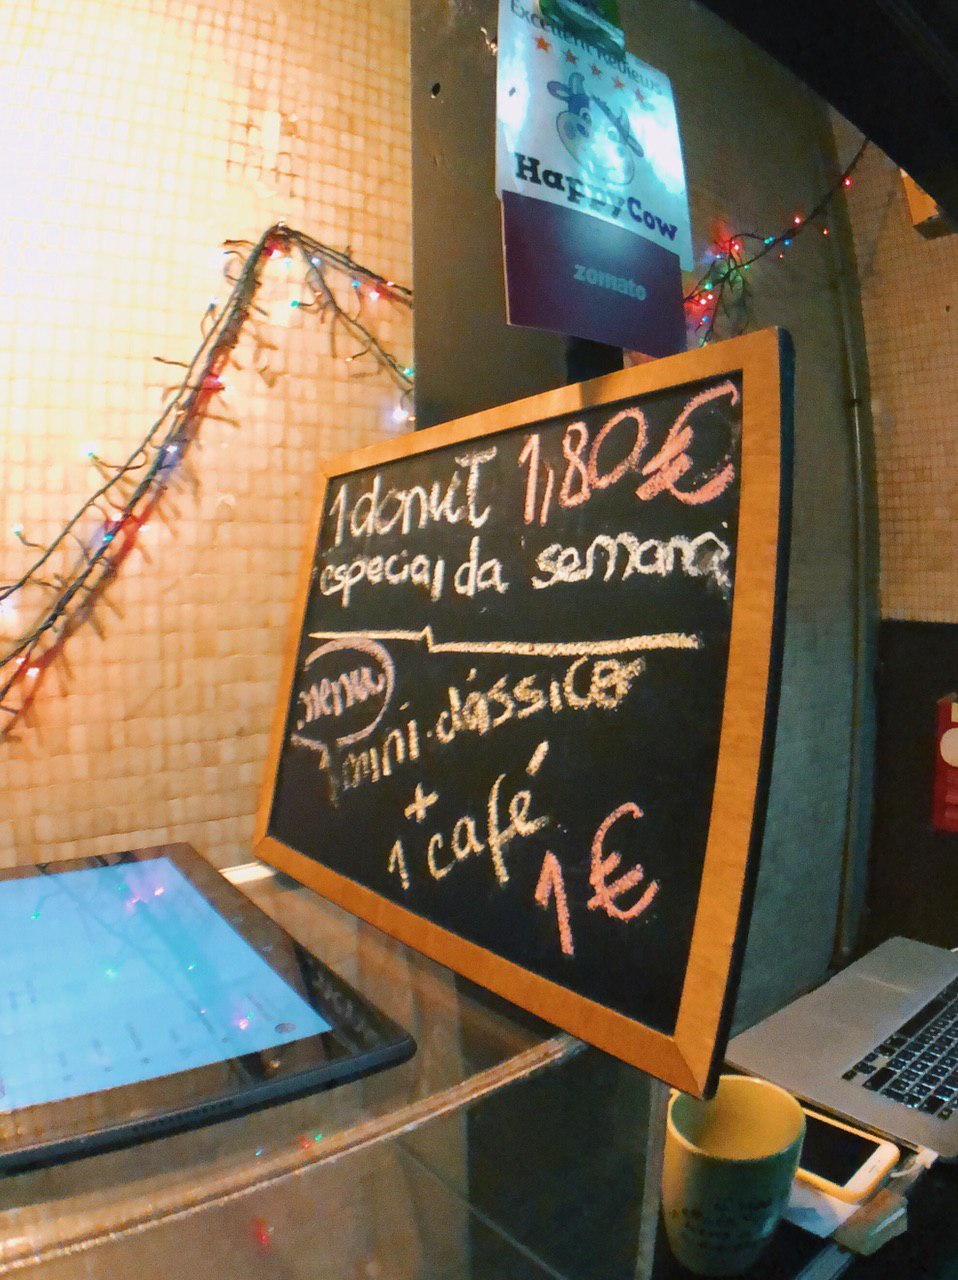 Excellent Reviews
HappyCow
zomato
1 donut 1,80€
especial da semana
menu
1 mini clássico
+
1 café
1€